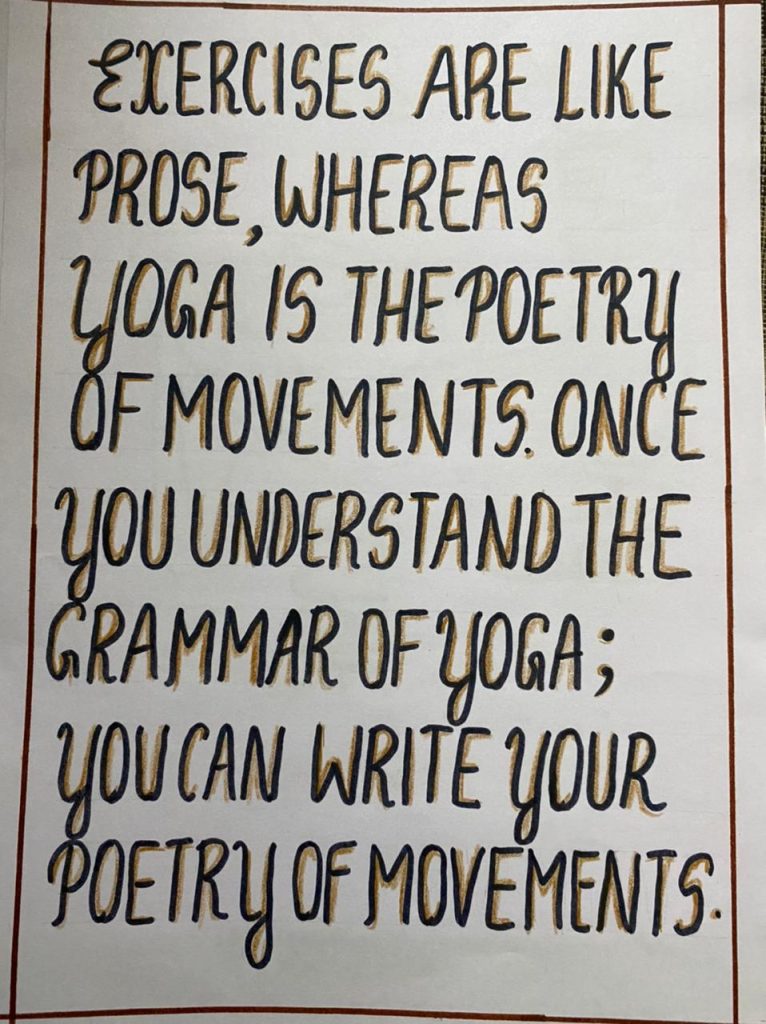 EXERCISES ARE LIKE
PROSE, WHEREAS
YOGA IS THE POETRY
OF MOVEMENTS. ONCE
YOU UNDERSTAND THE
GRAMMAR OF YOGA;
YOU CAN WRITE YOUR
POETRY OF MOVEMENTS.